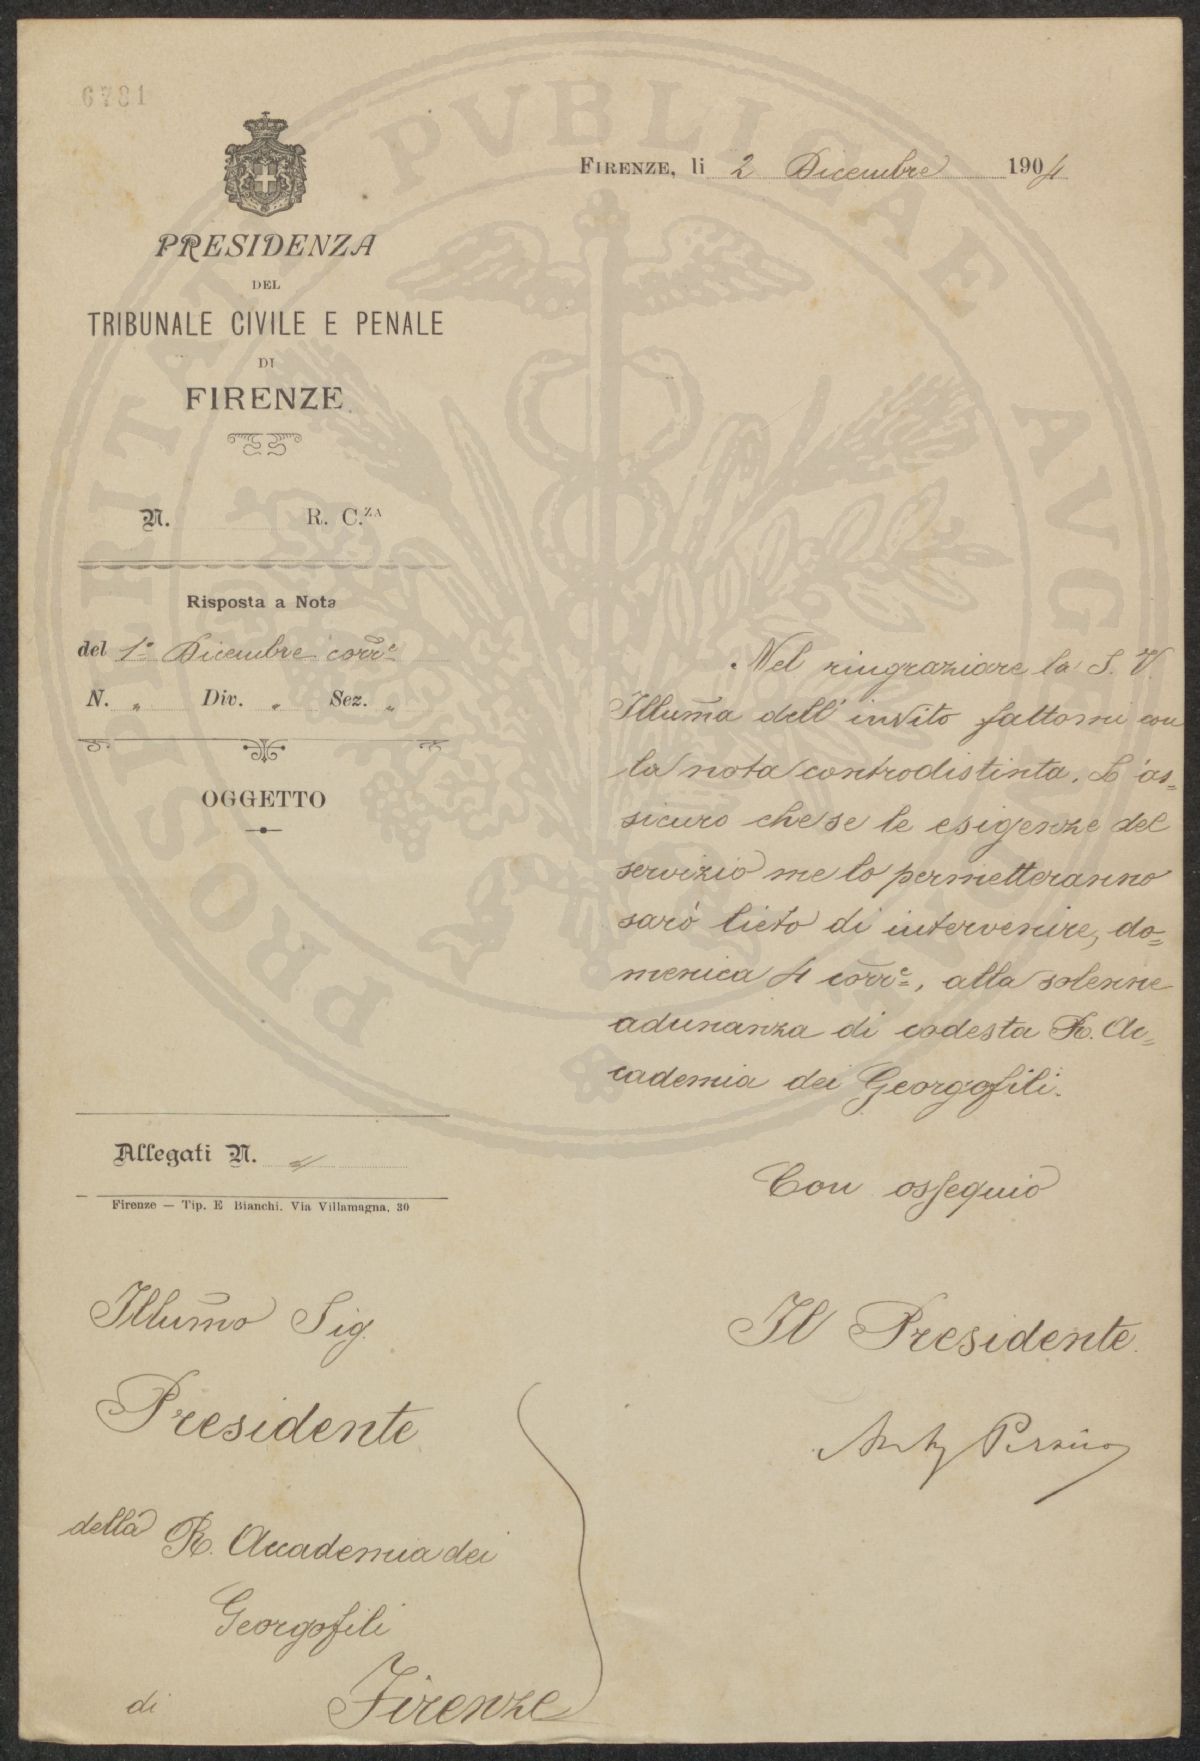 6781
FIRENZE, li 2 Dicembre 1904
PRESIDENZA
DEL
TRIBUNALE CIVILE E PENALE
DI
FIRENZE
N. R. C.ZA
Risposta a Nota
del 1° Dicembre corr.e
N. " Div. " Sez. "
OGGETTO
Nel ringraziare la S. V.
Illuma dell'invito fattomi con
la nota controdistinta, L'as=
sicuro che se le esigenze del
servizio me lo permetteranno
sarò lieto di intervenire, do=
menica 4 corr.e, alla solenne
adunanza di codesta R. Ac=
cademia dei Georgofili.
Con ossequio
Il Presidente
Allegati N.
Firenze — Tip. E Bianchi. Via Villamagna, 30
Illumo Sig.
Presidente
della R. Accademia dei
Georgofili
di Firenze
PROSPERITATI PVBLICAE AVGENDAE